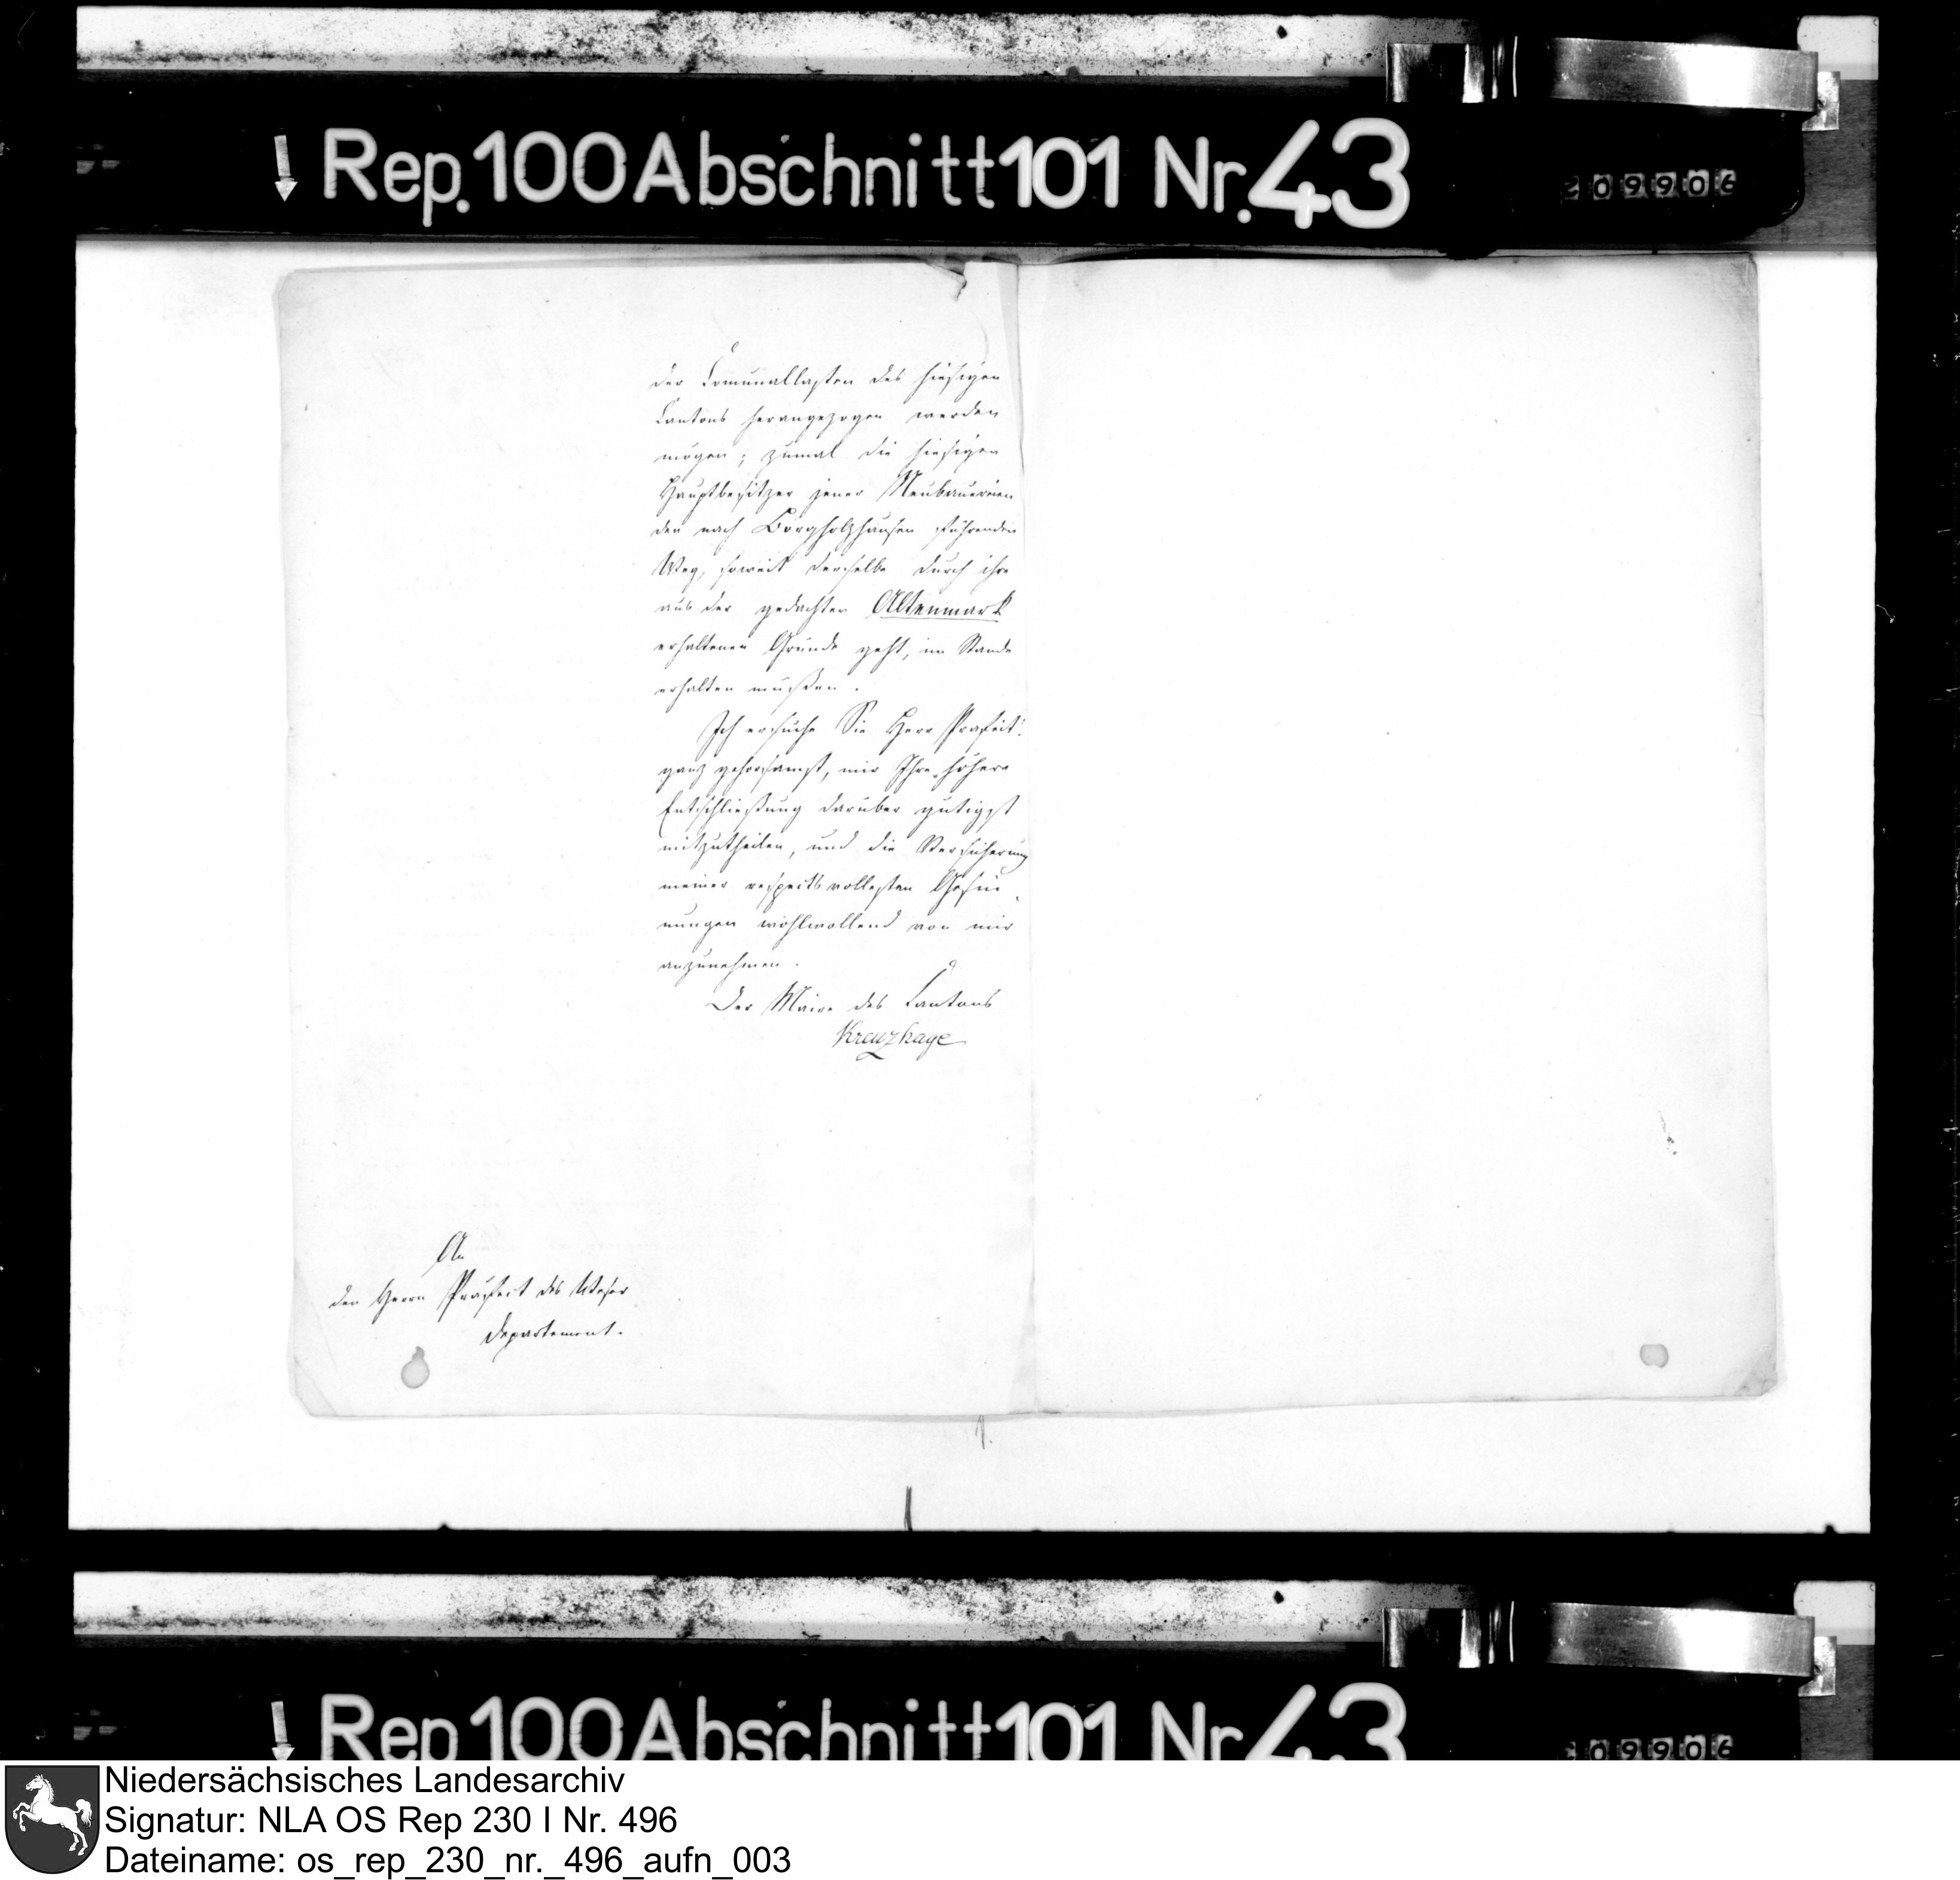 Rep. 100 Abschnitt 101 Nr. 43
209906
der Communallasten des hiesigen
Cantons herangezogen werden
mögen; zumal die hiesigen
Hauptbesitzer jener Neubauereien
den nach Borgholzhausen führenden
Weg, soweit derselbe durch ihre
aus der gedachten Altenmark
erhaltenen Gründe geht, im Stande
erhalten müßen.
Ich ersuche Sie Herr Präfect!
ganz gehorsamst, mir Ihre höhere
Entschließung darüber gütigst
mitzutheilen, und die Versicherung
meiner respectsvollesten Gesin-
nungen wohlwollend von mir
anzunehmen.
Der Maire des Cantons
Kreuzhage
An
den Herrn Präfect des Weser
Departement.
Rep. 100 Abschnitt 101 Nr. 43
09906
Niedersächsisches Landesarchiv
Signatur: NLA OS Rep 230 I Nr. 496
Dateiname: os_rep_230_nr._496_aufn_003